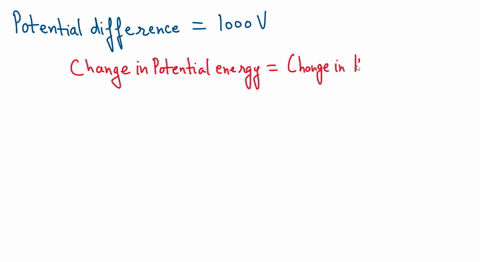 Potential difference = 1000 V
Change in Potential energy = Change in